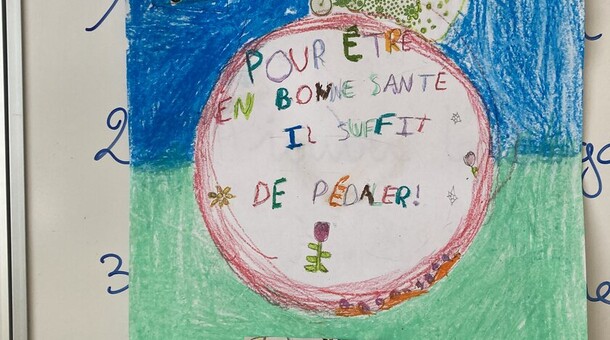 POUR ÊTRE
EN BONNE SANTE
IL SUFFIT
DE PÉDALER!
2
3